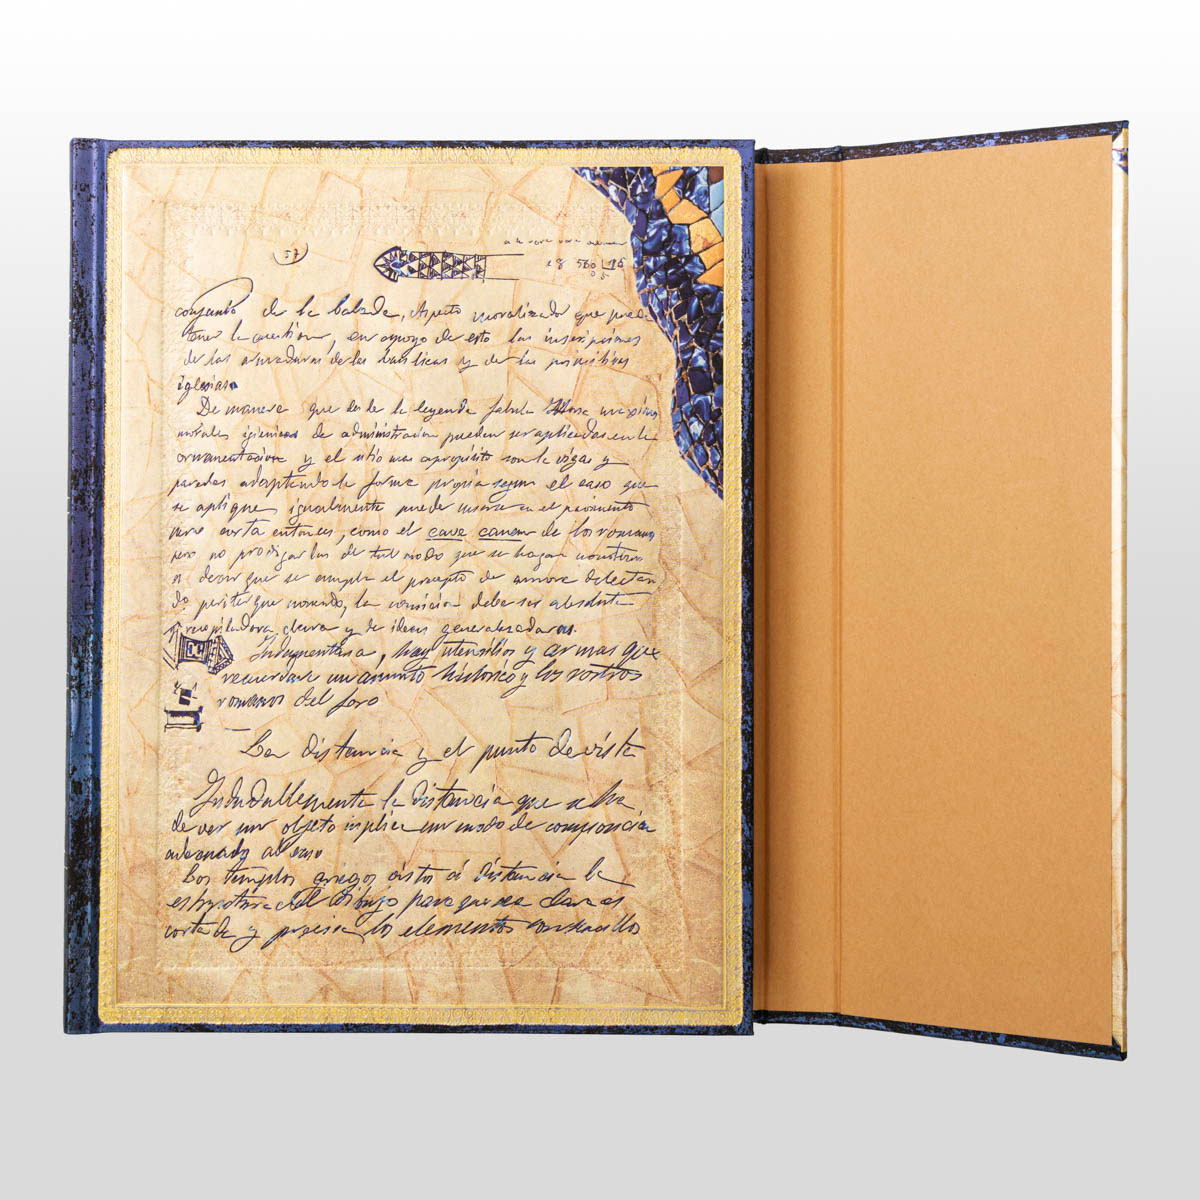 57
18 560 | 15
05
conjunto de la balada, Aspecto moralizador que puede
tener la cuestion, en apoyo de esto las inscripciones
de las armaduras de las basilicas y de las primitivas
iglesias
De manera que desde la leyenda fabula maximas
morales igienicas de administracion pueden ser aplicadas en la
ornamentacion y el sitio mas apropósito son la vigas y
paredes adaptando la forma propia segun el caso que
se aplique igualmente puede usarse en el pavimento
entonces, como el cave canem de los romanos
pero no prodigarlas de tal modo que se hagan
es decir que se cumpla el precepto de
la concision debe ser absoluta
clara y de ideas generalizadoras.
Indumentaria, hay utensilios y armas que
recuerdan un asunto historico y los rostros
romanos del foro
La distancia y el punto de vista
Indudablemente la distancia que se ha
de ver un objeto implica un modo de composicion
adecuado al caso
Los templos griegos vistos á distancia la
estructura del dibujo para que sea clara es
cortada y precisa los elementos sencillos